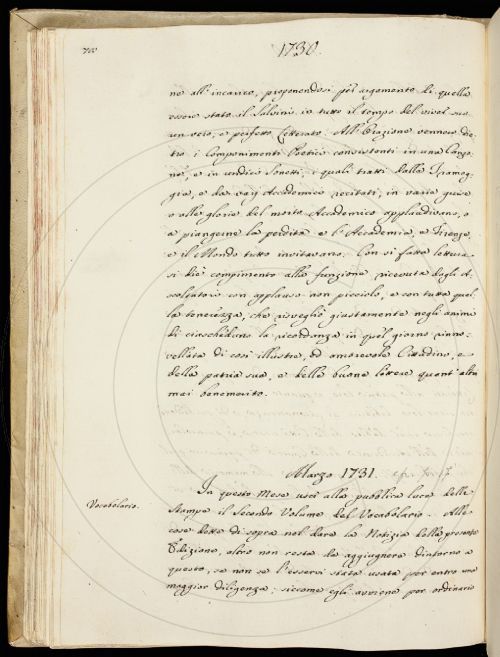 1730.
ne all' incarico, proponendosi per argomento di quella
essere stato il Salvini in tutto il tempo del viver suo
un vero, e perfetto Letterato. All' Orazione vennero die
tro i Componimenti Poetici consistenti in una Canzo
ne, e in undici Sonetti, i quali tratti dalla Tramog
gia, e da varj Accademici recitati, in varie guise
o alle glorie del morto Accademico applaudivano, o
a piangerne la perdita e l' Accademia, e Firenze
e il Mondo tutto invitavano. Con sì fatta lettura
si diè compimento alla funzione ricevuta dagli A
scoltatori con applauso non piccolo, e con tutta quel
la tenerezza, che risvegliò giustamente negli animi
di ciascheduno la ricordanza in quel giorno rinno-
vellata di così illustre, ed amorevole Cittadino, e
della patria sua, e delle buone lettere quant' altri
mai benemerito.
Marzo 1731.
Vocabolario.
In questo Mese uscì alla pubblica luce delle
Stampe il Secondo Volume del Vocabolario. Alle
cose dette di sopra nel dare la Notizia della presente
Edizione, altro non resta da aggiugnere dintorno a
questo, se non se l' esservi stata usata per entro una
maggior diligenza; siccome egli avviene per ordinario